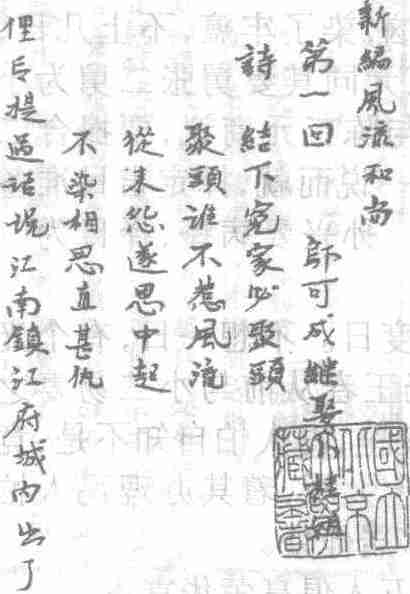 新編風流和尚
第一回 鄔可成継娶小桂姐
詩 結下冤家必聚頭
聚頭誰不惹風流
從来怨遂思中起
不染相思直甚仇
俚言提過话说江南鎮江府城内出了
國立
藏書